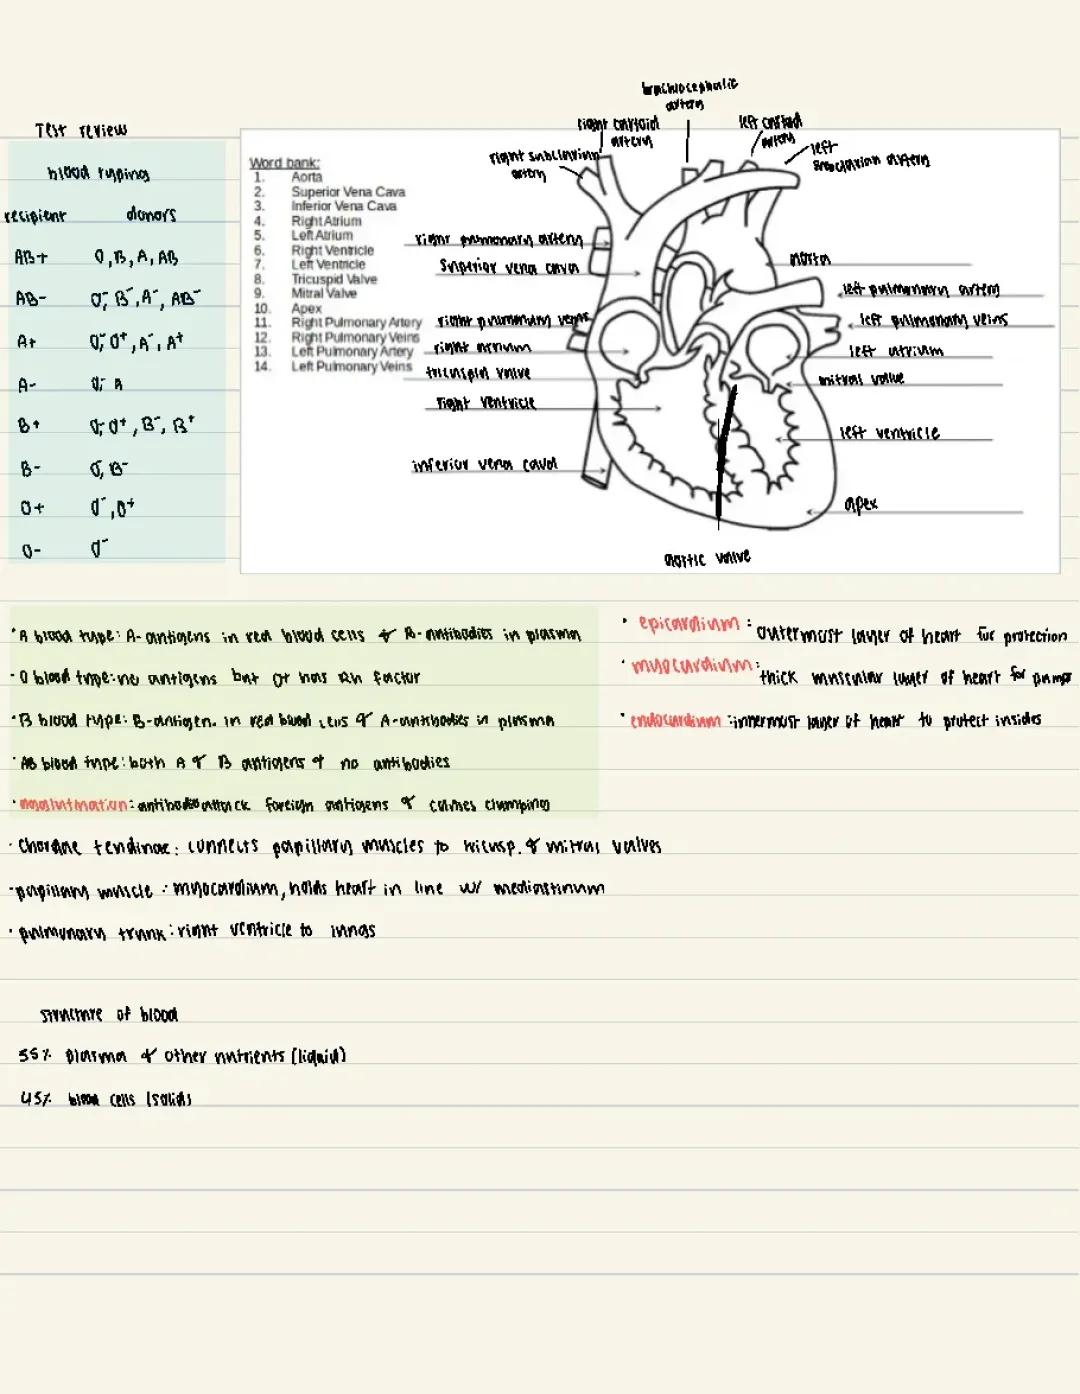 Test review
blood typing
recipient donors
AB+ O, B, A, AB
AB- O-, B-, A-, AB-
A+ O-, O+, A-, A+
A- O-, A
B+ O-, O+, B-, B+
B- O-, B-
O+ O-, O+
O- O-
Word bank:
1. Aorta
2. Superior Vena Cava
3. Inferior Vena Cava
4. Right Atrium
5. Left Atrium
6. Right Ventricle
7. Left Ventricle
8. Tricuspid Valve
9. Mitral Valve
10. Apex
11. Right Pulmonary Artery
12. Right Pulmonary Veins
13. Left Pulmonary Artery
14. Left Pulmonary Veins
brachiocephalic
artery
right carotid
artery
left carotid
artery
right subclavian
artery
left
subclavian artery
right pulmonary artery
superior vena cava
right pulmonary veins
right atrium
tricuspid valve
right ventricle
inferior vena cava
aorta
left pulmonary artery
left pulmonary veins
left atrium
mitral valve
left ventricle
apex
aortic valve
• A blood type: A-antigens in red blood cells & B-antibodies in plasma
• O blood type: no antigens but O+ has Rh factor
• B blood type: B-antigen. in red blood cells & A-antibodies in plasma
• AB blood type: both A & B antigens & no antibodies
• agglutination: antibodies attack foreign antigens & causes clumping
• epicardium: outermost layer of heart for protection
• myocardium: thick muscular layer of heart for pump
• endocardium: innermost layer of heart to protect insides
• Chordae tendinae: connects papillary muscles to tricusp. & mitral valves
• papillary muscle: myocardium, holds heart in line w/ mediastinum
• pulmonary trunk: right ventricle to lungs
structure of blood
55% plasma & other nutrients (liquid)
45% blood cells (solid)